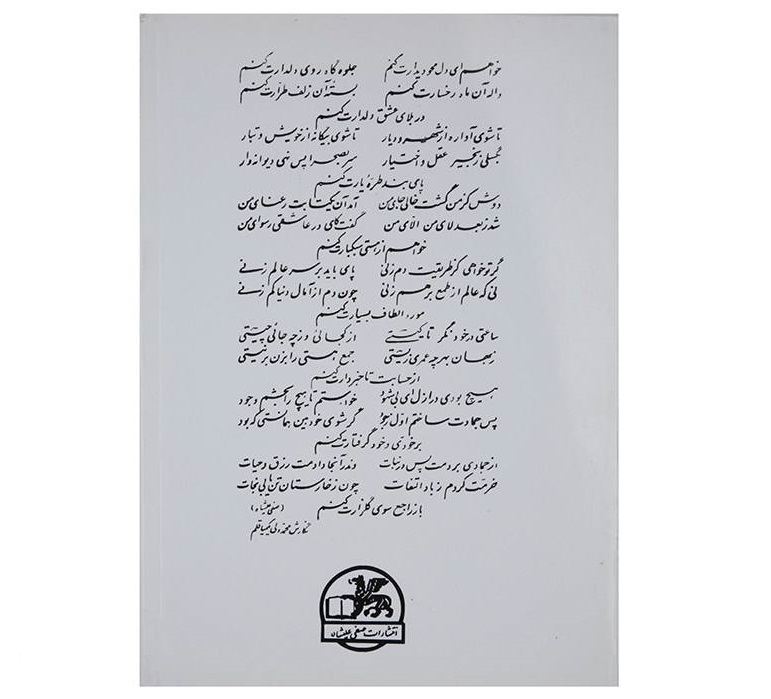 خواهم ای دل محو دیدارت کنم جلوه گاه روی دلدارت کنم
واله آن ماه رخسارت کنم بستهٔ آن زلف طرارت کنم
در بلای عشق دلدارت کنم
تا شوی آواره از شهر و دیار تا شوی بیگانه از خویش و تبار
بگسلی زنجیر عقل و اختیار سر بصحرا پس نهی دیوانه وار
پای بند طرهٔ یارت کنم
دوش کز من گشت خالی جای من آمد آن یکتا بت رعنای من
شد ز بعد لای من الای من گفت کای در عاشقی رسوای من
خواهم از هستی سبکبارت کنم
گر تو خواهی کز طریقت دم زنی پای باید بر سر عالم زنی
نی که عالم از طمع بر هم زنی چون دم از آمال دنیا کم زنی
مورد الطاف بسیارت کنم
ساعتی در خود نگر تا کیستی از کجائی و ز چه جائی چیستی
در جهان بهر چه عمری زیستی جمع هستی را بزن بر نیستی
از حسابت تا خبردارت کنم
هیچ بودی در ازل ای بی شهود خواستم تا هیچ را بخشم وجود
پس جمادت ساختم اول ز جود گر شوی خودبین همانستی که بود
بر خودی خود گرفتارت کنم
از جمادی بردمت پس در نبات وندر آنجا دادمت رزق و حیات
خرمت کردم ز باد التفات چون ز خارستان تن یابی نجات
باز راجع سوی گلزارت کنم
(صفی علیشاه)
نگارش محمد ولی کیمیاقلم
انتشارات صفی علیشاه